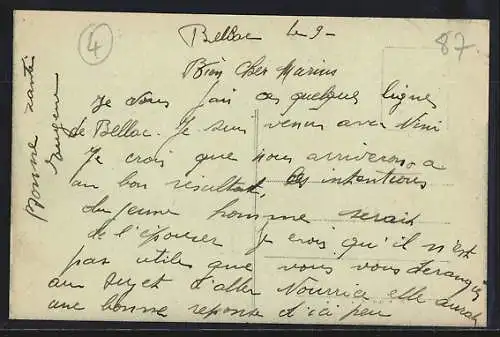 4
87
Bellac le 9-
Bien Cher Marius
Je vous fais ces quelques lignes
de Bellac. Je suis venus avec Nini
Je crois que nous arriverons a
un bon résultat, les intentions
du jeune homme serait
de l'épouser Je crois qu'il n'est
pas utiles que vous vous dérangiez
au sujet d'aller Nourrice elle aurait
une bonne reponse d'ici peu
Bonne santé
Eugene